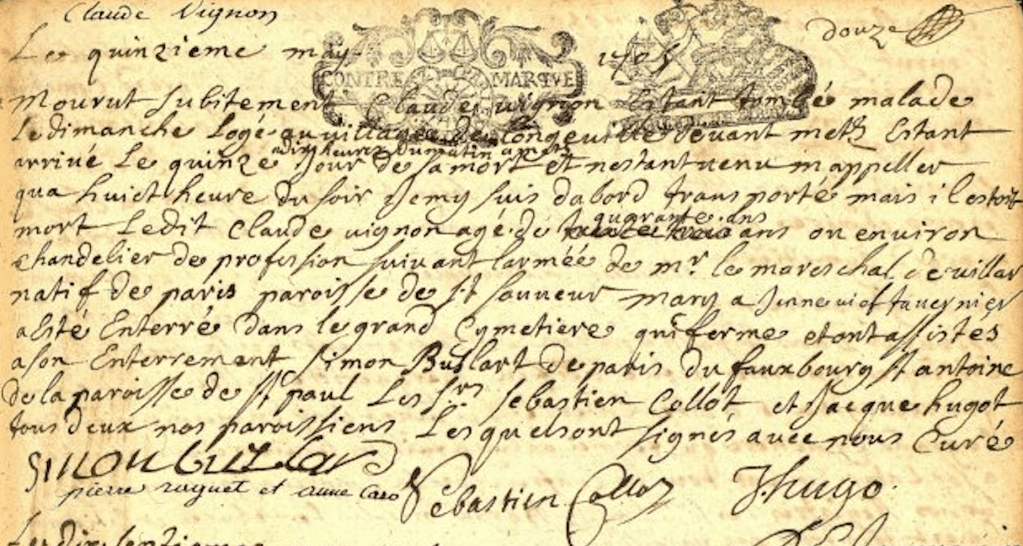 Claude Vignon
douze
Le quinzieme may 1705
CONTRE MARQUE
Mourut subitement Claude vignon Estant tombé malade
Le dimanche Logé au village de Longeville devant metz Estant
a dix heures du matin a metz
arrivé Le quinze jour de sa mort et n'estant venu m appeller
qua huict heure du soir je my suis dabord transporté mais il estoit
quarante ans
mort Ledit Claude vignon agé de ans ou environ
chandelier de profession suivant larmée de mr. le mareschal de villar
natif de paris paroisse de st sauveur mary a Jennevief tavernier
a Esté Enterré dans le grand Cymetiere qui ferme et ont assistes
a son Enterrement Simon Bullart de paris du fauxbourg st antoine
de la paroisse de st paul Les srs sebastien Collot et jacque hugot
tous deux nos paroissiens Lesquels ont signés avec nous Curé
Simon bullard
pierre raguet et anne caro Sebastien Collot J. hugo
Le dix septieme